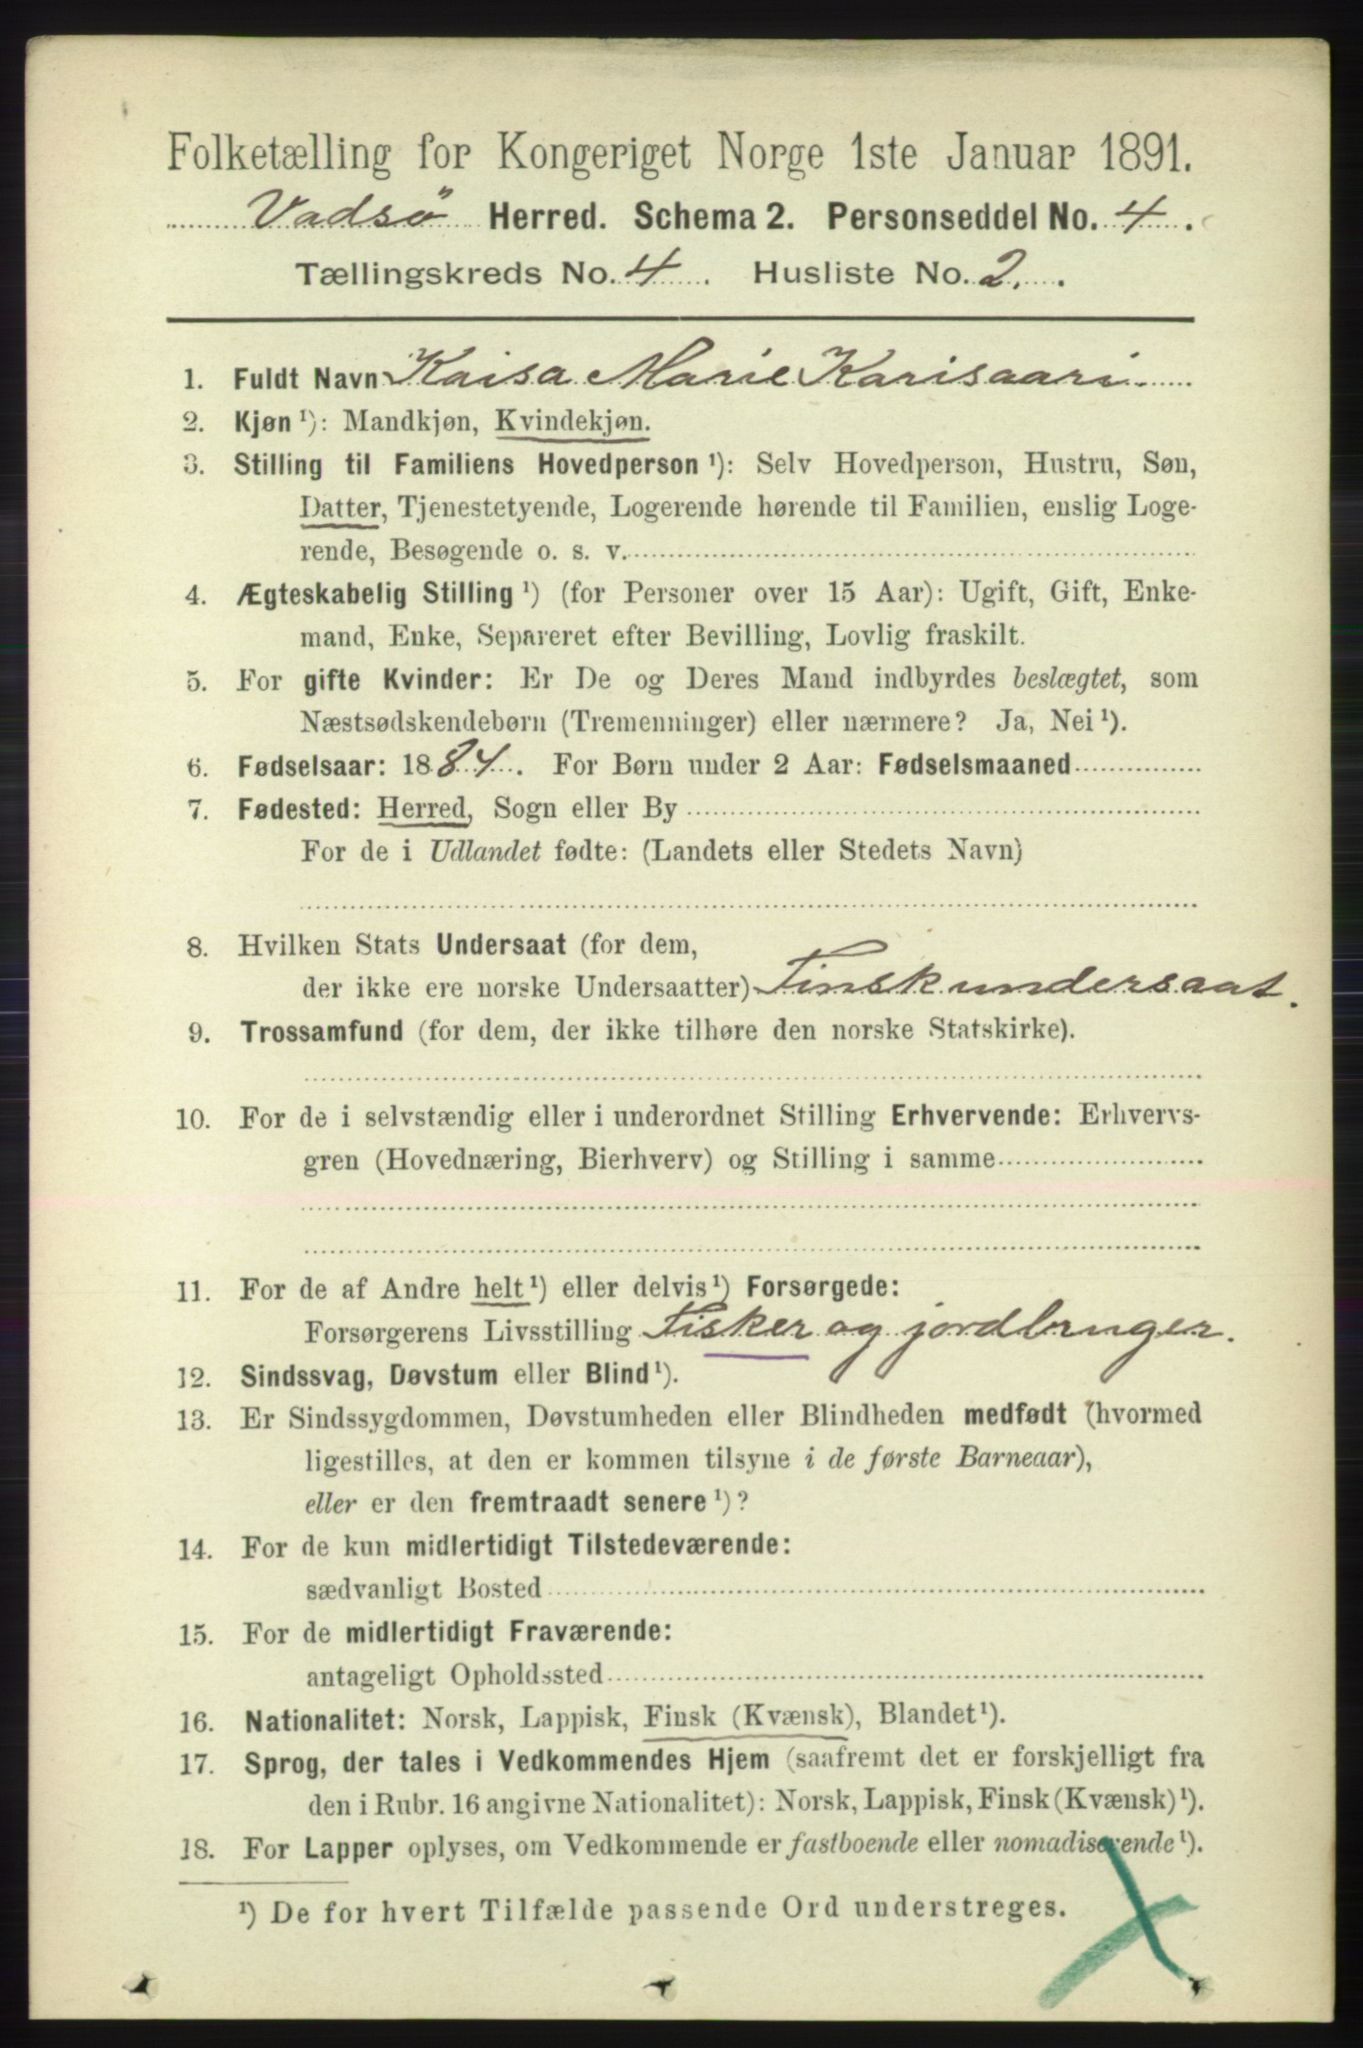 Folketælling for Kongeriget Norge 1ste Januar 1891.
Vadsö Herred. Schema 2. Personseddel No. 4.
Tællingskreds No. 4. Husliste No. 2.
1. Fuldt Navn Kaisa Marie Karisaari
2. Kjøn¹): Mandkjøn, Kvindekjøn.
3. Stilling til Familiens Hovedperson¹): Selv Hovedperson, Hustru, Søn,
Datter, Tjenestetyende, Logerende hørende til Familien, enslig Loge-
rende, Besøgende o. s. v.
4. Ægteskabelig Stilling¹) (for Personer over 15 Aar): Ugift, Gift, Enke-
mand, Enke, Separeret efter Bevilling, Lovlig fraskilt.
5. For gifte Kvinder: Er De og Deres Mand indbyrdes beslægtet, som
Næstsødskendebørn (Tremenninger) eller nærmere? Ja, Nei¹).
6. Fødselsaar: 1884. For Børn under 2 Aar: Fødselsmaaned
7. Fødested: Herred, Sogn eller By
For de i Udlandet fødte: (Landets eller Stedets Navn)
8. Hvilken Stats Undersaat (for dem,
der ikke ere norske Undersaatter) Finsk undersaat.
9. Trossamfund (for dem, der ikke tilhøre den norske Statskirke).
10. For de i selvstændig eller i underordnet Stilling Erhvervende: Erhvervs-
gren (Hovednæring, Bierhverv) og Stilling i samme
11. For de af Andre helt¹) eller delvis¹) Forsørgede:
Forsørgerens Livsstilling Fisker og jordbruger.
12. Sindssvag, Døvstum eller Blind¹).
13. Er Sindssygdommen, Døvstumheden eller Blindheden medfødt (hvormed
ligestilles, at den er kommen tilsyne i de første Barneaar),
eller er den fremtraadt senere¹)?
14. For de kun midlertidigt Tilstedeværende:
sædvanligt Bosted
15. For de midlertidigt Fraværende:
antageligt Opholdssted
16. Nationalitet: Norsk, Lappisk, Finsk (Kvænsk), Blandet¹).
17. Sprog, der tales i Vedkommendes Hjem (saafremt det er forskjelligt fra
den i Rubr. 16 angivne Nationalitet): Norsk, Lappisk, Finsk (Kvænsk)¹).
18. For Lapper oplyses, om Vedkommende er fastboende eller nomadiserende¹).
¹) De for hvert Tilfælde passende Ord understreges.